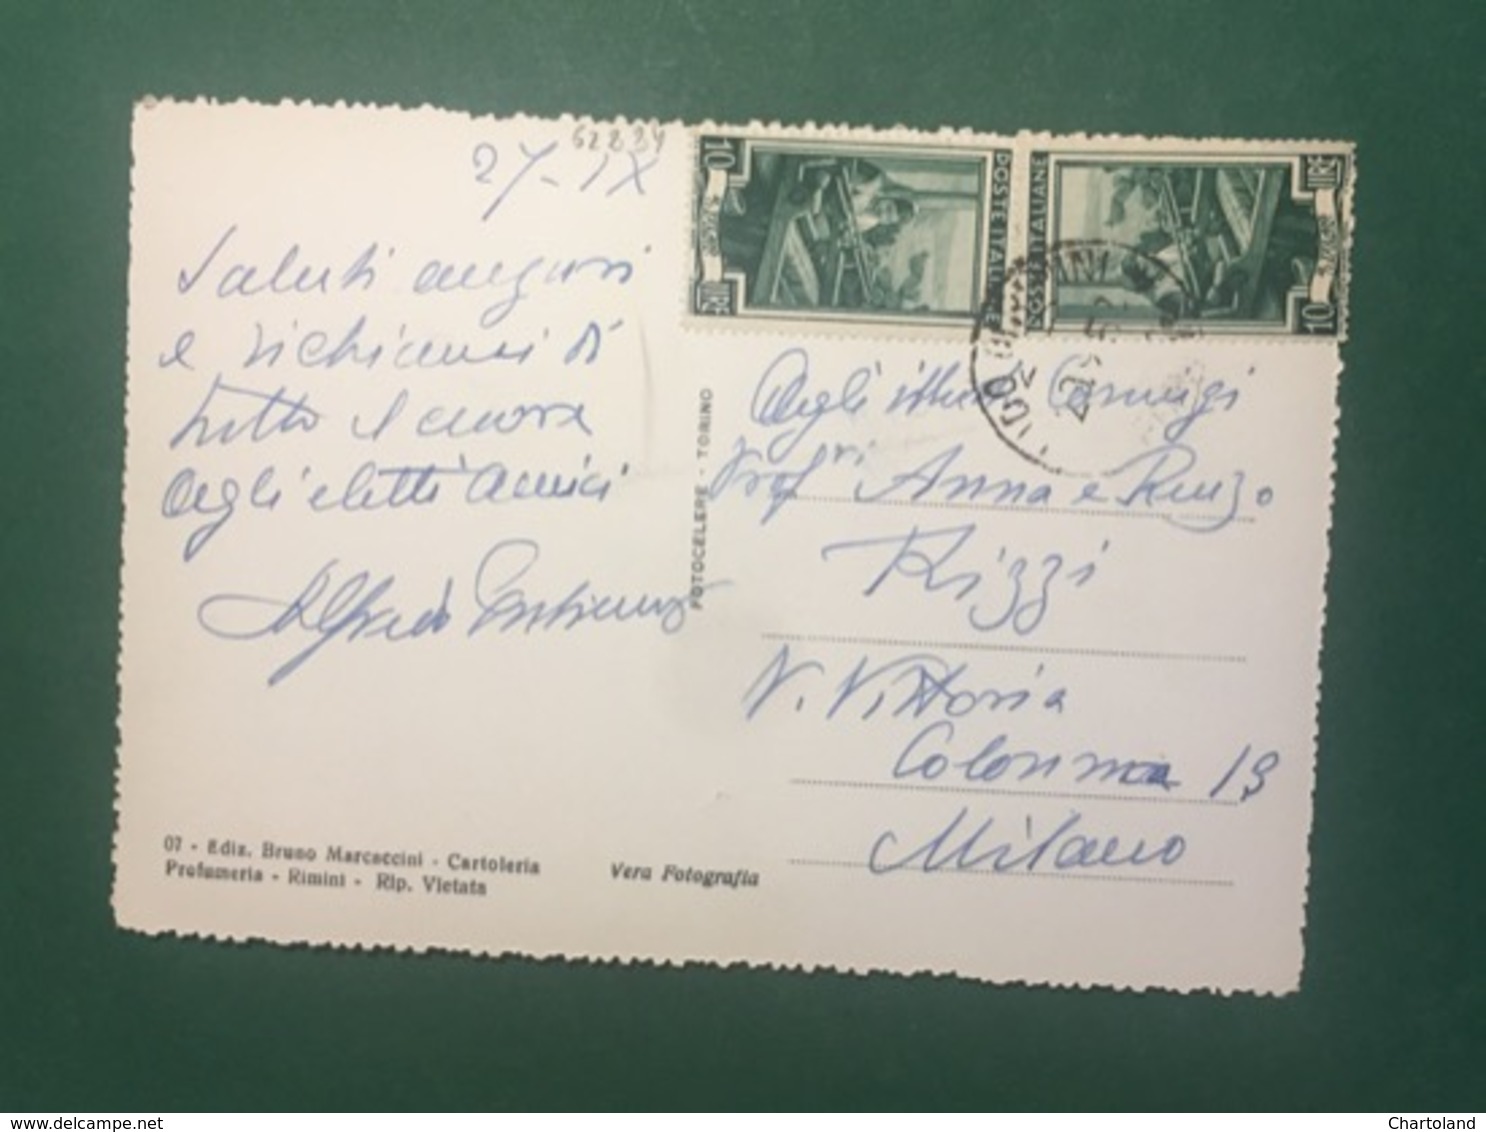 62894
27-IX
Saluti auguri
e richiami di
tutto il cuore
agli eletti amici
Alfredo
07 - Ediz. Bruno Marcaccini - Cartoleria
Profumeria - Rimini - Rip. Vietata
Vera Fotografia
FOTOCELERE - TORINO
10 LIRE
POSTE ITALIANE
POSTE ITALIANE
10 LIRE
Agli illmi Coniugi
Profri Anna e Renzo
Rizzi
V. Vittoria
Colonna 19
Milano
www.delcampe.net
Chartoland